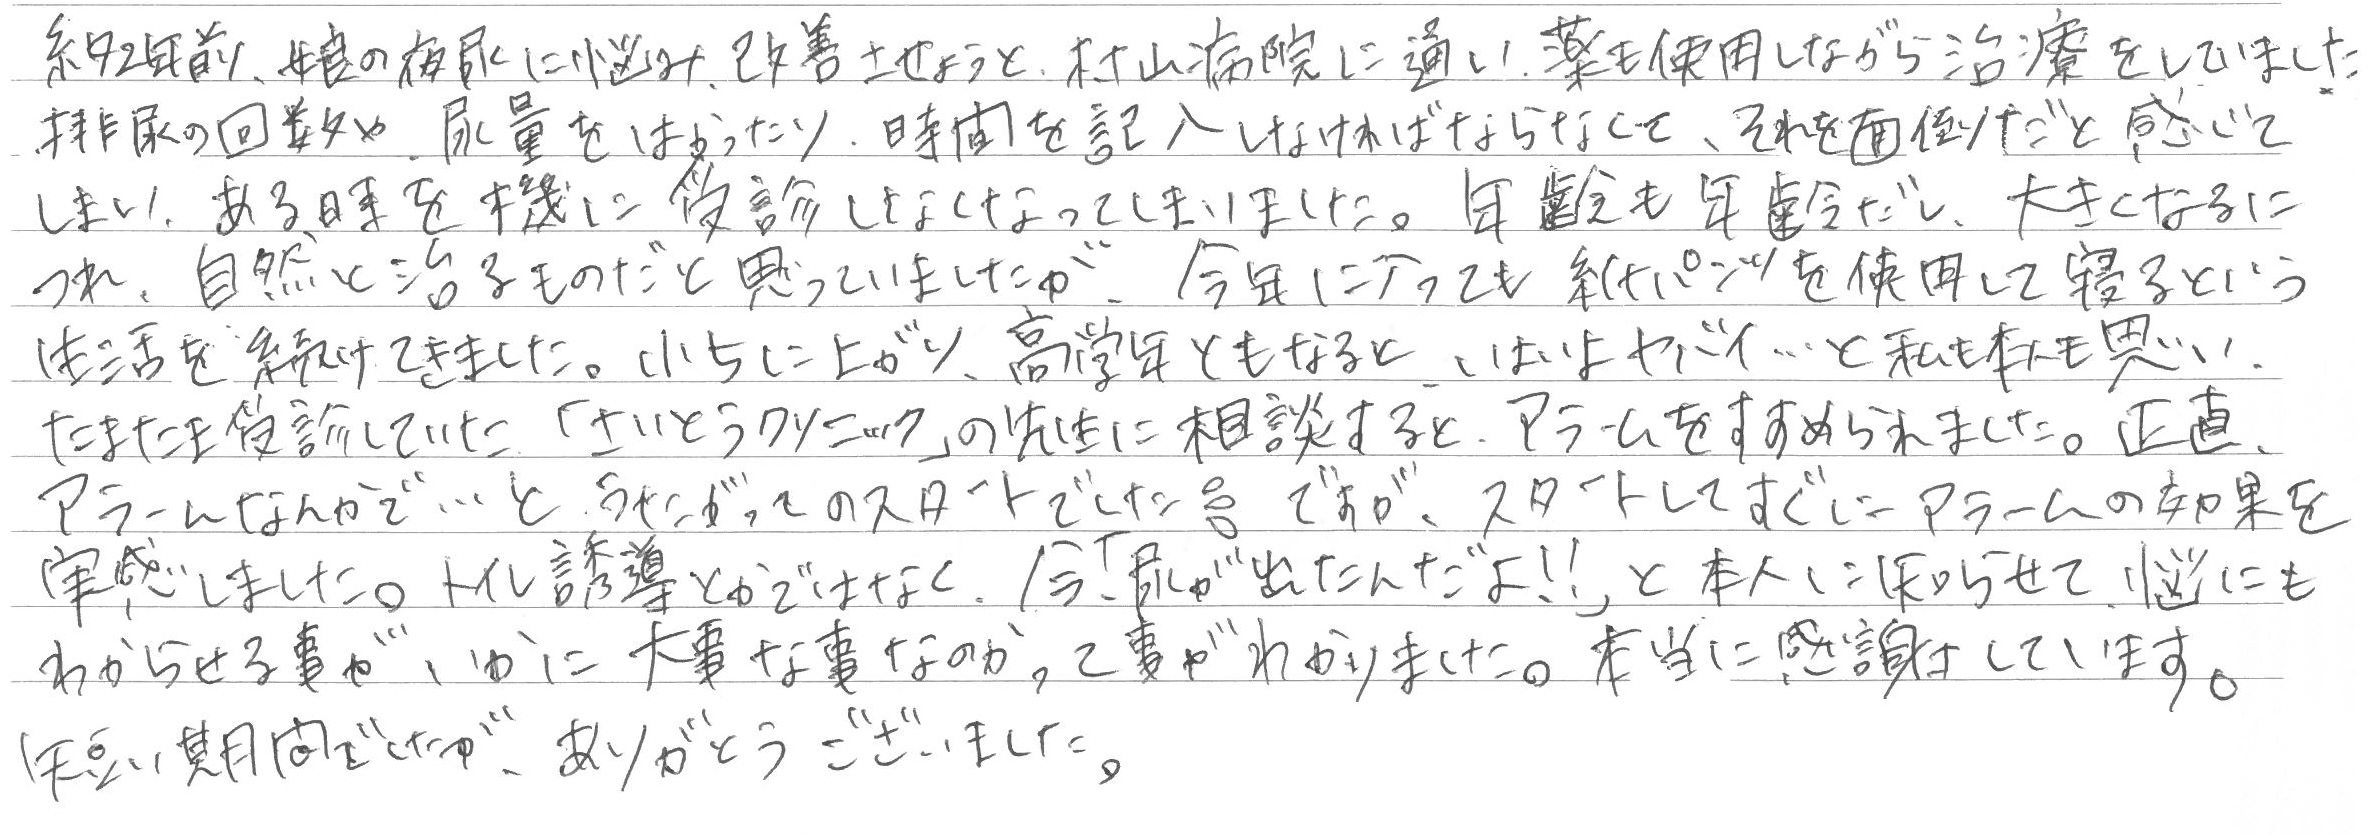 約2年前、娘の夜尿に悩み、改善させようと、村山病院に通い、薬も使用しながら治療をしていました
排尿の回数や、尿量をはかったり、時間を記入しなければならなくて、それを面倒だと感じて
しまい、ある時を機に受診しなくなってしまいました。年齢も年齢だし、大きくなるに
つれ、自然と治るものだと思っていましたが、今年に入っても紙パンツを使用して寝るという
生活を続けてきました。小5に上がり、高学年ともなると、いよいよヤバイ…と私も本人も思い、
たまたま受診していた「さいとうクリニック」の先生に相談すると、アラームをすすめられました。正直、
アラームなんかで…と、うたがってのスタートでした ですが、スタートしてすぐにアラームの効果を
実感しました。トイレ誘導とかではなく、今「尿が出たんだよ!!」と本人に知らせて、脳にも
わからせる事が、いかに大事な事なのかって事がわかりました。本当に感謝しています。
短い期間でしたが、ありがとうございました。